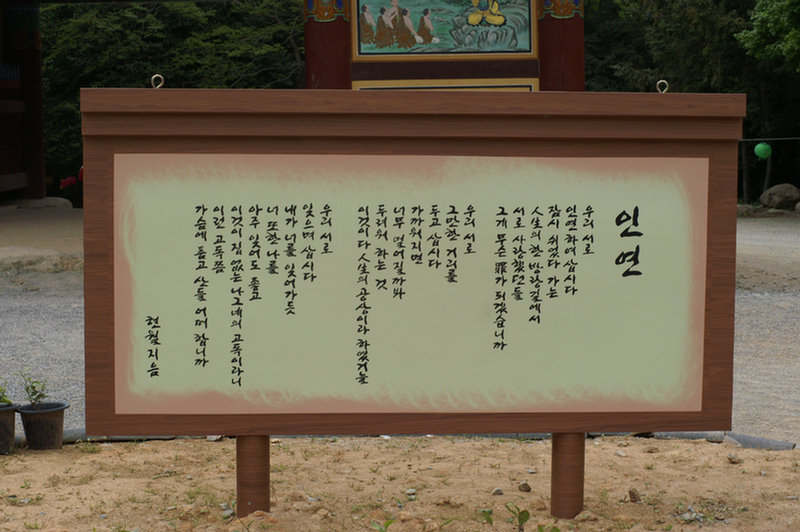 인연
우리 서로
인연하여 삽시다
잠시 쉬었다 가는
人生의 한 방랑길에서
서로 사랑했던들
그게 무슨 罪가 되겠습니까
우리 서로
그만한 거리를
두고 삽시다
가까워지면
너무 멀어질까봐
두려워 하는 것
이것이다 人生의 공상이라 하였거늘
우리 서로
잊으며 삽시다
내가 너를 잊어가듯
너 또한 나를
아주 잊어도 좋고
이것이 집 없는 나그네의 고독이라니
이런 고독쯤
가슴에 품고 산들 어떠 합니까
현월 지음